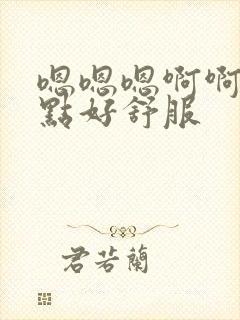 嗯嗯嗯啊啊
點好舒服
君若蘭